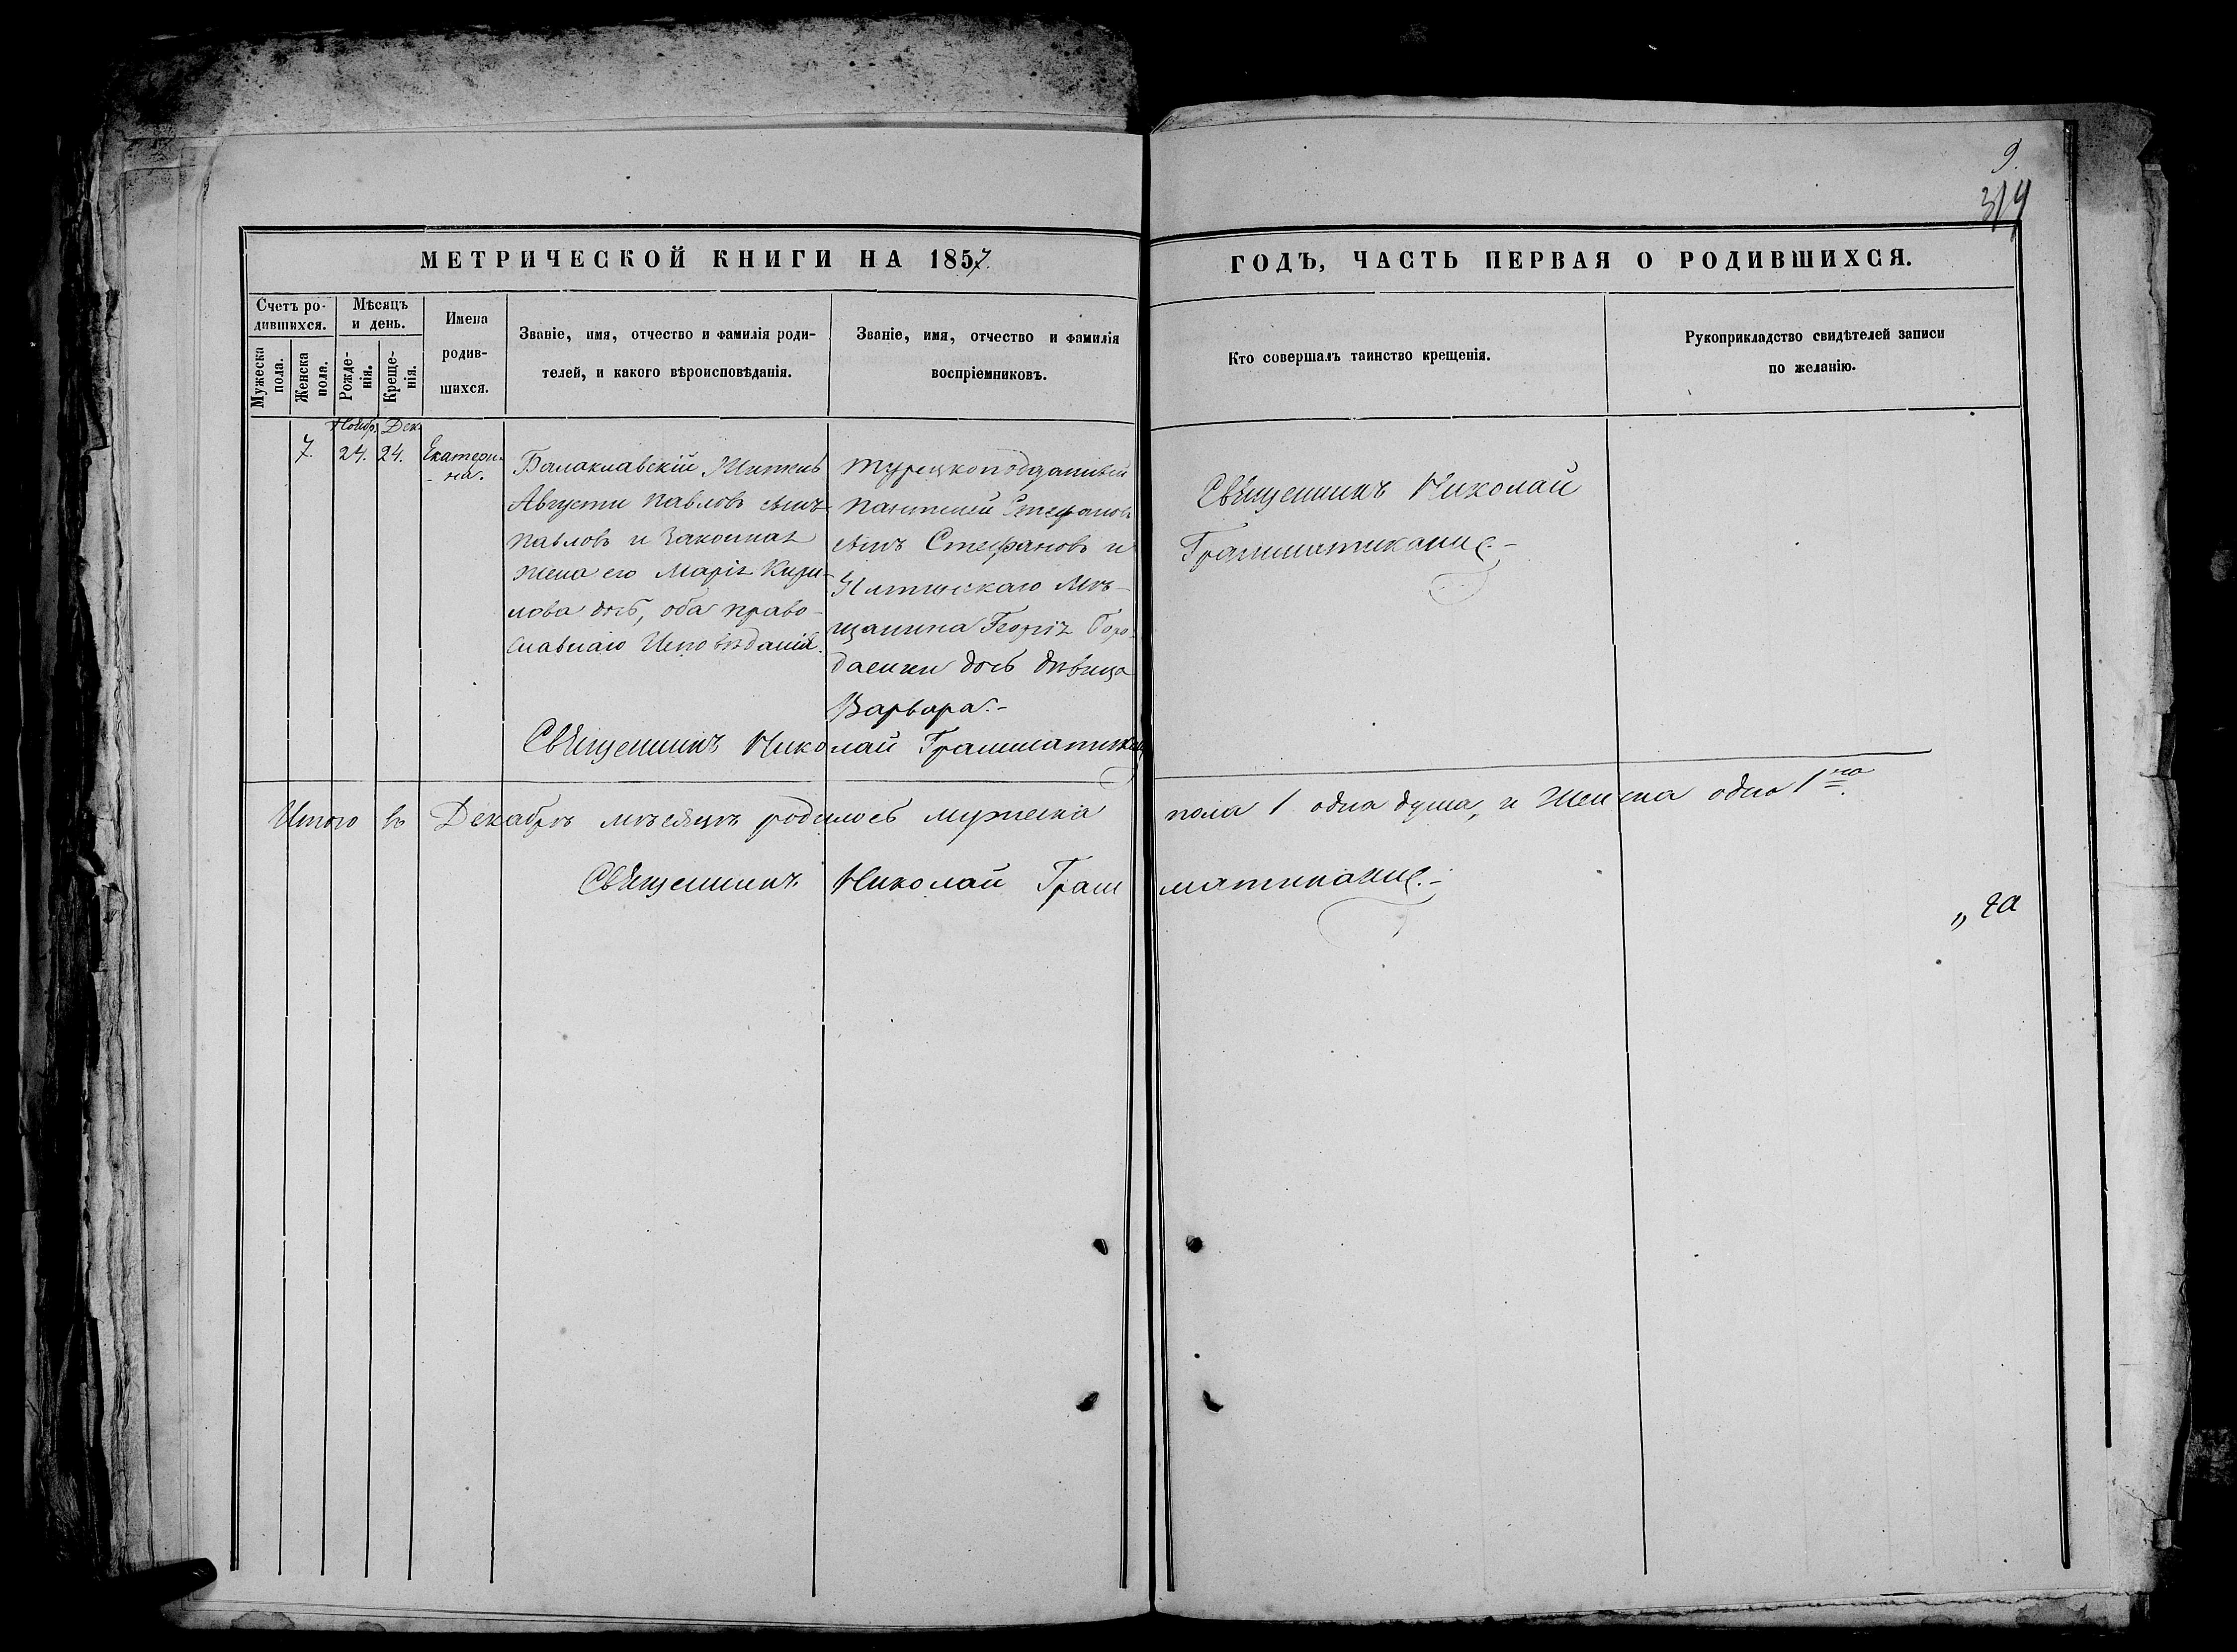 9.
319
МЕТРИЧЕСКОЙ КНИГИ НА 1857.
ГОДЪ, ЧАСТЬ ПЕРВАЯ О РОДИВШИХСЯ.
Счетъ ро-
дившихся.
Мужеска
пола.
Женска
пола.
Мѣсяцъ
и день.
Рожде-
нія.
Креще-
нія.
Имена
родив-
шихся.
Званіе, имя, отчество и фамилія роди-
телей, и какого вѣроисповѣданія.
Званіе, имя, отчество и фамилія
воспріемниковъ.
Кто совершалъ таинство крещенія.
Рукоприкладство свидѣтелей записи
по желанію.
7.
Ноябр.
24.
Дек.
24.
Екатери-
-на.
Балаклавскій Житель
Августи Павловъ сынъ
Павловъ и Законная
жена его Марія Кири-
лова дочь, оба право-
славнаго Исповѣданія.
Турецкоподданный
Пантелей Стефановъ
сынъ Стефановъ и
Ялтинскаго Мѣ-
щанина Георгія
дочь дѣвица
Варвара.-
Священникъ Николай
Грамматикаки.-
Священникъ Николай Грамматикаки
Итого въ Декабрѣ мѣсяцѣ родилось мужеска пола 1 одна душа, и Женска одна 1на.
Священникъ Николай Грамматикаки.-
„ га